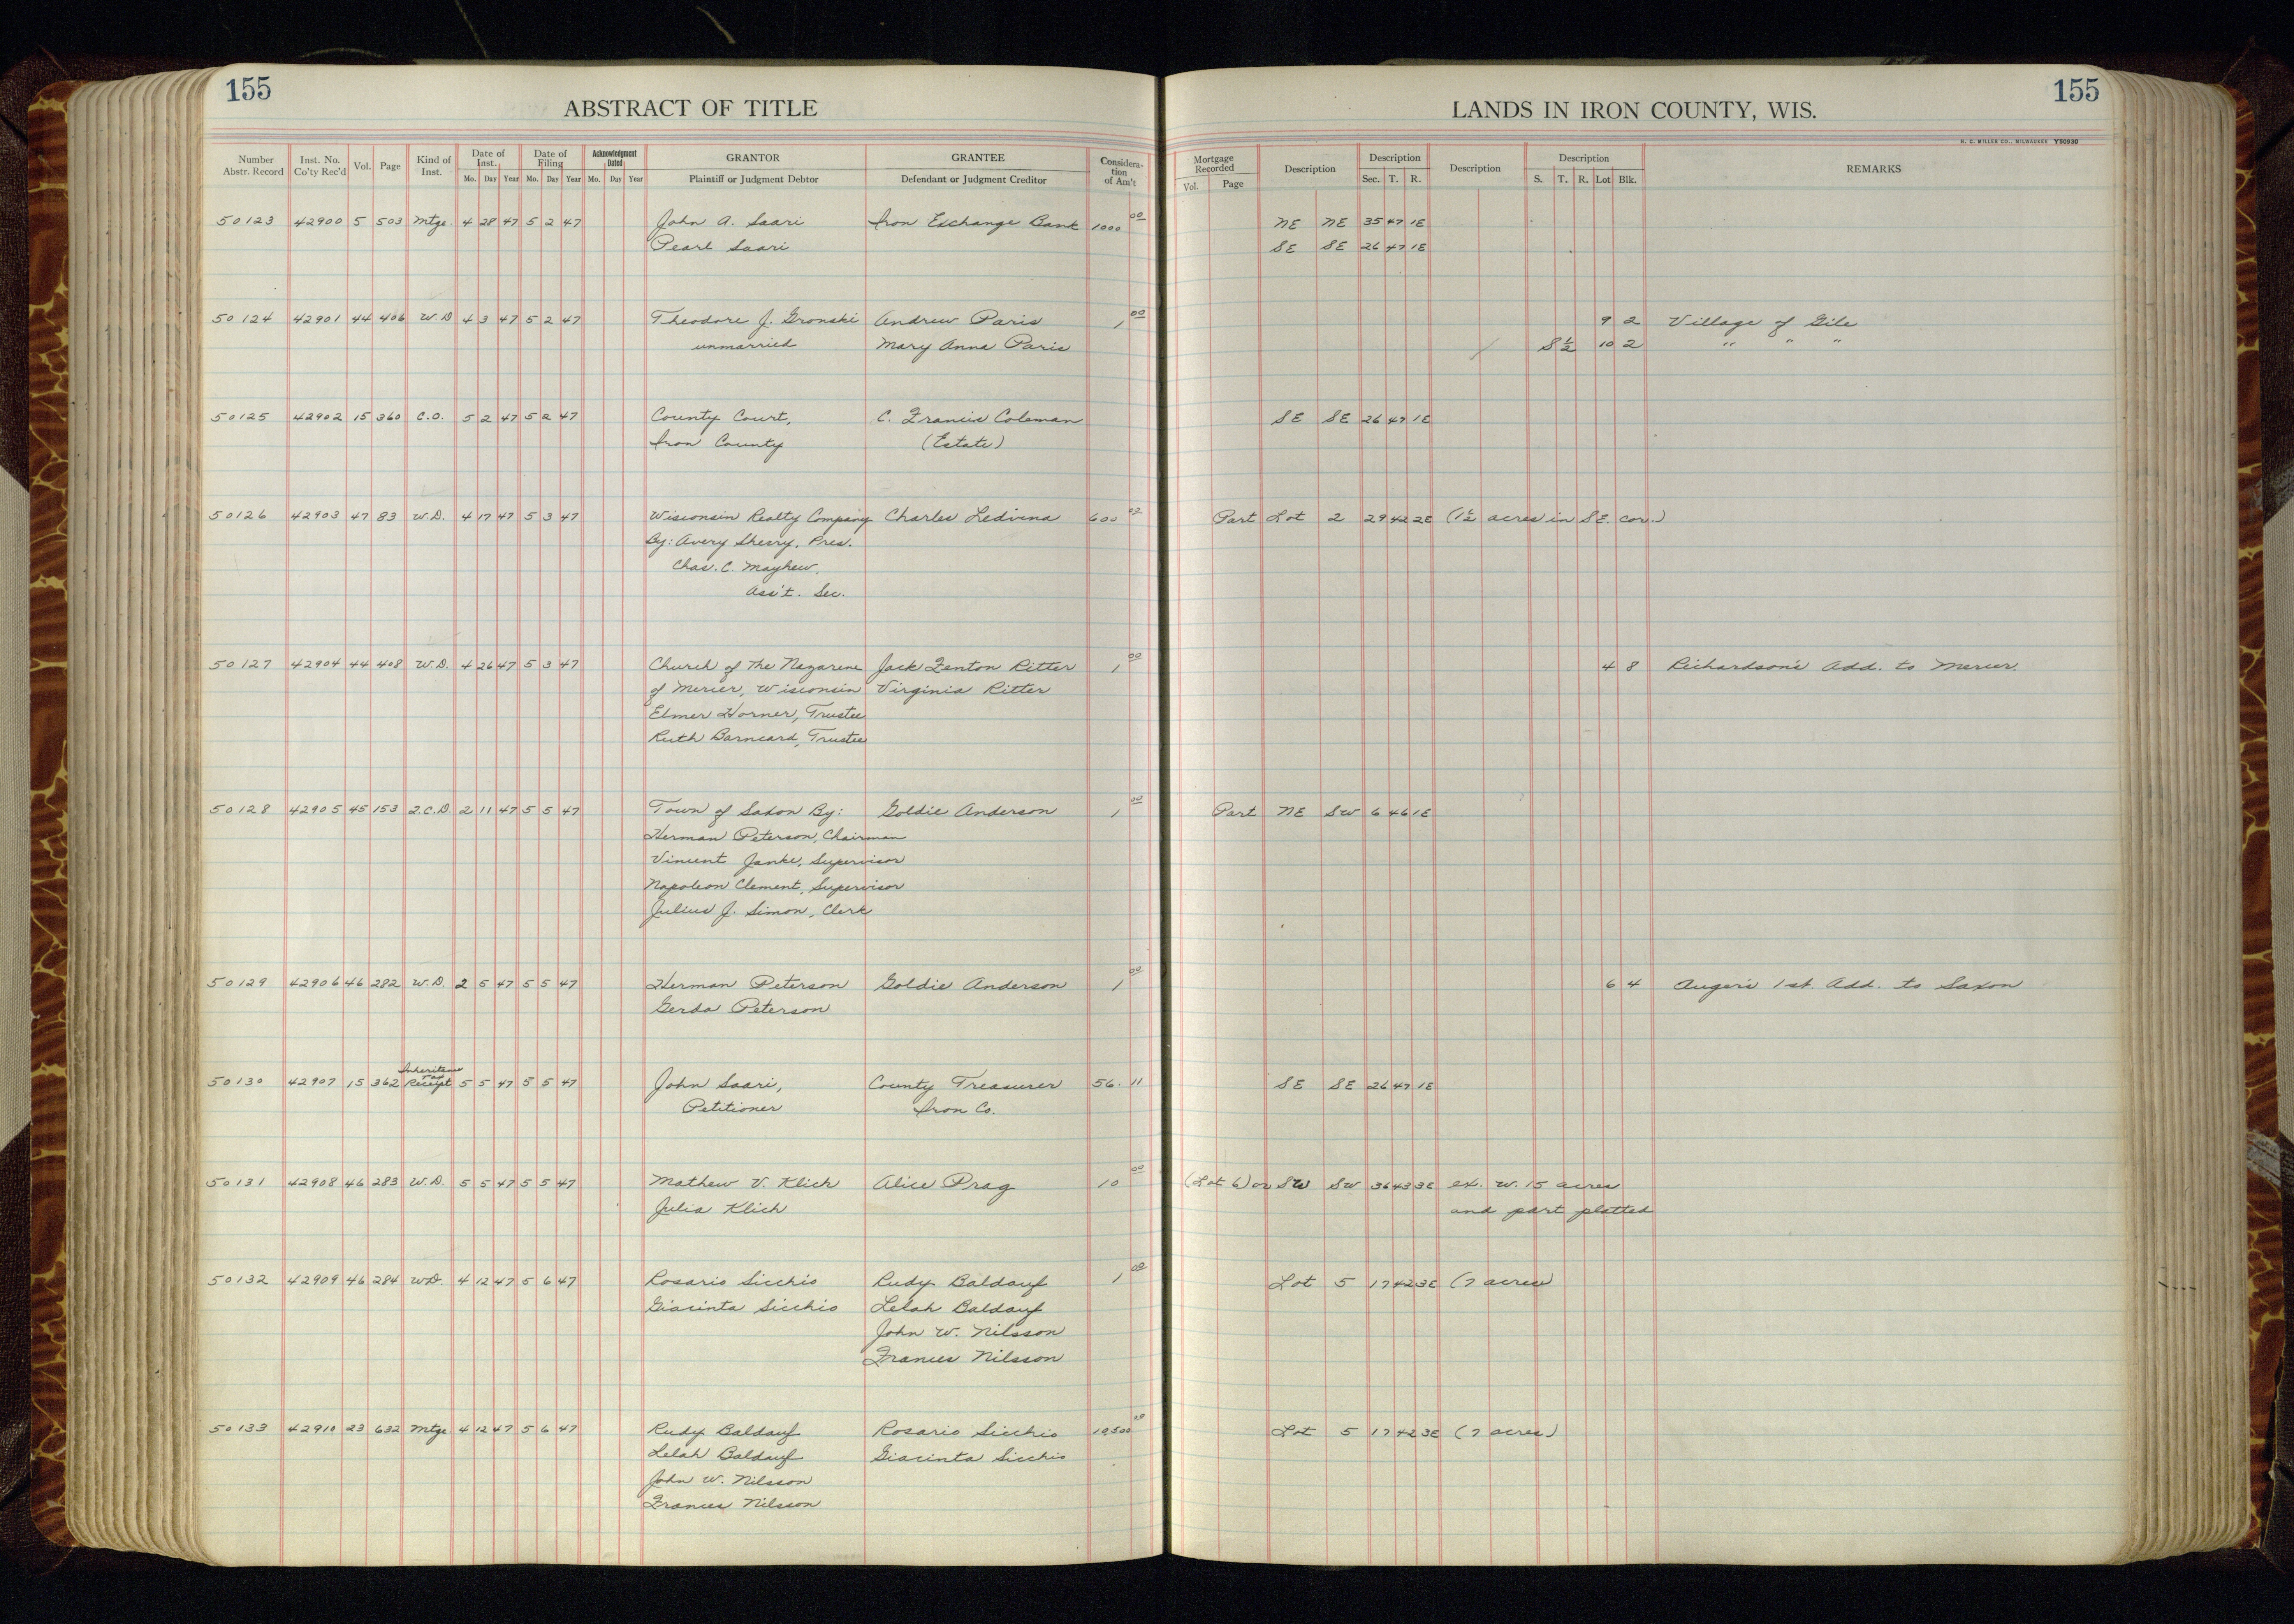 155
ABSTRACT OF TITLE
LANDS IN IRON COUNTY, WIS.
155
H. C. MILLER CO., MILWAUKEE Y50930
Number Abstr. Record | Inst. No. Co'ty Rec'd | Vol. | Page | Kind of Inst. | Date of Inst. Mo. Day Year | Date of Filing Mo. Day Year | Acknowledgment Dated Mo. Day Year | GRANTOR Plaintiff or Judgment Debtor | GRANTEE Defendant or Judgment Creditor | Consideration of Am't | Mortgage Recorded Vol. Page | Description | Description Sec. T. R. | Description | Description S. T. R. Lot Blk. | REMARKS
50123 42900 5 503 Mtge. 4 28 47 5 2 47 John A. Saari Iron Exchange Bank 1000 00 NE NE 35 47 1E
Pearl Saari SE SE 26 47 1E
50124 42901 44 406 W.D 4 3 47 5 2 47 Theodore J. Gronski Andrew Paris 1 00 9 2 Village of Gile
unmarried Mary Anna Paris S½ 10 2 " " "
50125 42902 15 360 C.O. 5 2 47 5 2 47 County Court, C. Francis Coleman SE SE 26 47 1E
Iron County (Estate)
50126 42903 47 83 W.D. 4 17 47 5 3 47 Wisconsin Realty Company Charles Ledvina 600 00 Part Lot 2 29 42 2E (1½ acres in SE. cor.)
By: Avery Sherry, Pres.
Chas. C. Mayhew,
Ass't. Sec.
50127 42904 44 408 W.D. 4 26 47 5 3 47 Church of The Nazarene Jack Fenton Ritter 1 00 4 8 Richardson's Add. to Mercer.
of Mercer, Wisconsin Virginia Ritter
Elmer Horner, Trustee
Ruth Barncard, Trustee
50128 42905 45 153 Q.C.D. 2 11 47 5 5 47 Town of Saxon By: Goldie Anderson 1 00 Part NE SW 6 46 1E
Herman Peterson, Chairman
Vincent Janke, Supervisor
Napoleon Clement, Supervisor
Julius J. Simon, Clerk
50129 42906 46 282 W.D. 2 5 47 5 5 47 Herman Peterson Goldie Anderson 1 00 6 4 Auger's 1st. Add. to Saxon
Gerda Peterson
50130 42907 15 362 Inheritance Tax Receipt 5 5 47 5 5 47 John Saari, County Treasurer 56. 11 SE SE 26 47 1E
Petitioner Iron Co.
50131 42908 46 283 W.D. 5 5 47 5 5 47 Mathew V. Klich Alice Prag 10 00 (Lot 6) or SW SW 36 43 3E ex. W. 15 acres
Julia Klich and part platted
50132 42909 46 284 W.D. 4 12 47 5 6 47 Rosario Sicchio Rudy Baldauf 1 00 Lot 5 17 42 3E (7 acres)
Giacinta Sicchio Lelah Baldauf
John W. Nilsson
Frances Nilsson
50133 42910 23 632 Mtge. 4 12 47 5 6 47 Rudy Baldauf Rosario Sicchio 10,500 00 Lot 5 17 42 3E (7 acres)
Lelah Baldauf Giacinta Sicchio
John W. Nilsson
Frances Nilsson